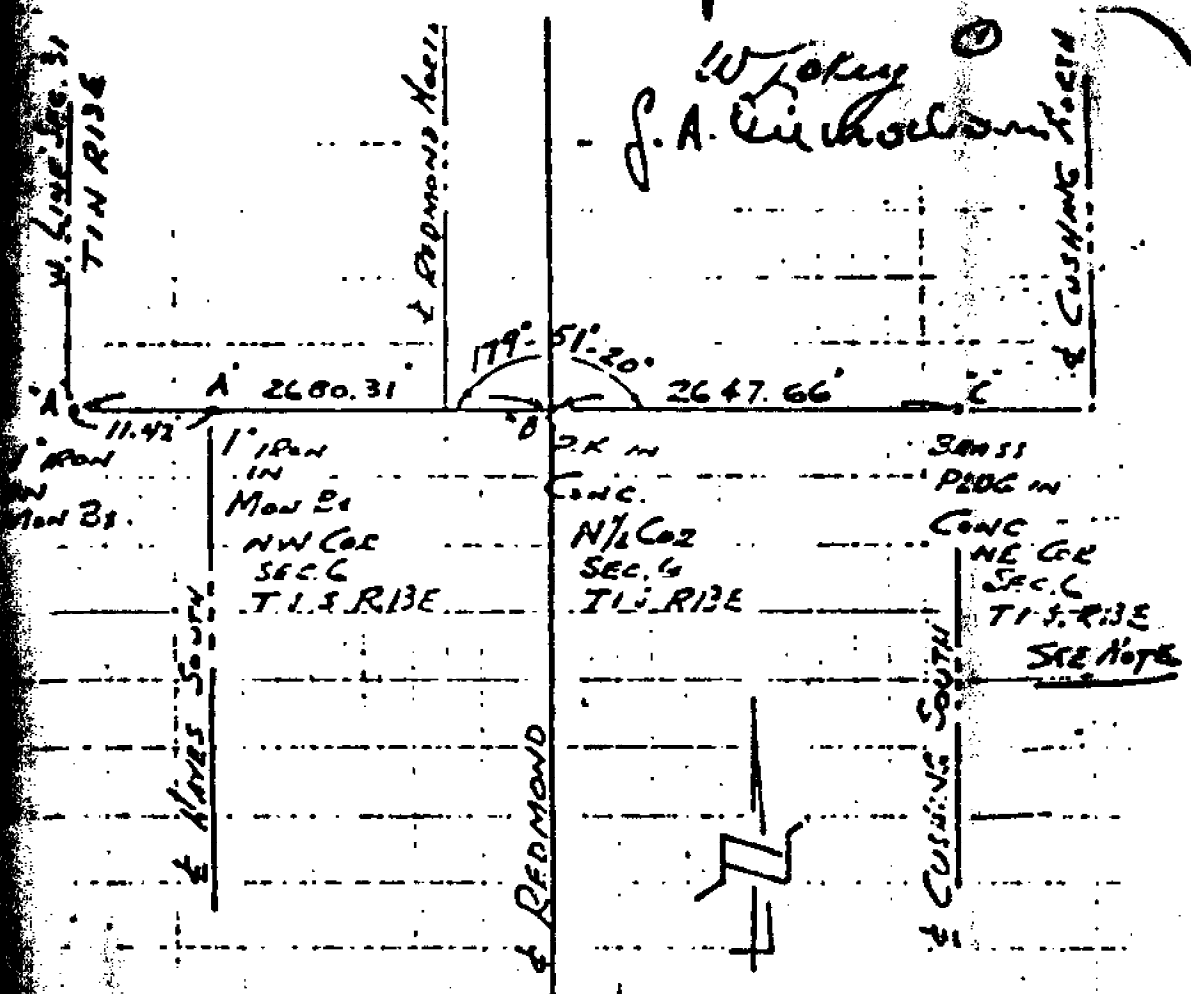 W. LINE SEC. 31
T1N R13E
℄ REDMOND NORTH
J. A.
℄ CUSHING NORTH
179°-51'-20"
"A" A' 2680.31' "B" 2647.66' "C"
11.42'
1" IRON
IN
MON BX.
1" IRON
IN
MON BX
NW COR
SEC. 6
T1S R13E
P.K IN
CONC.
N¼ COR
SEC. 6
T1S R13E
BRASS
PLUG IN
CONC
NE COR
SEC. 6
T1S. R13E
SEE NOTE
℄ HAYES SOUTH
℄ REDMOND
℄ CUSHING SOUTH